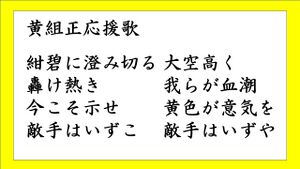 黄組正応援歌
紺碧に澄み切る 大空高く
轟け熱き 我らが血潮
今こそ示せ 黄色が意気を
敵手はいずこ 敵手はいずや